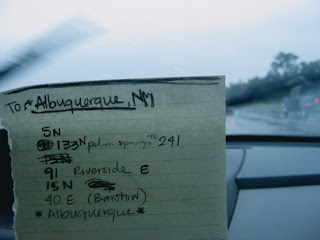 To ~ Albuquerque, NM
5N
133N palm springs TO 241
91 Riverside E
15N
40 E (Barstow)
*Albuquerque*